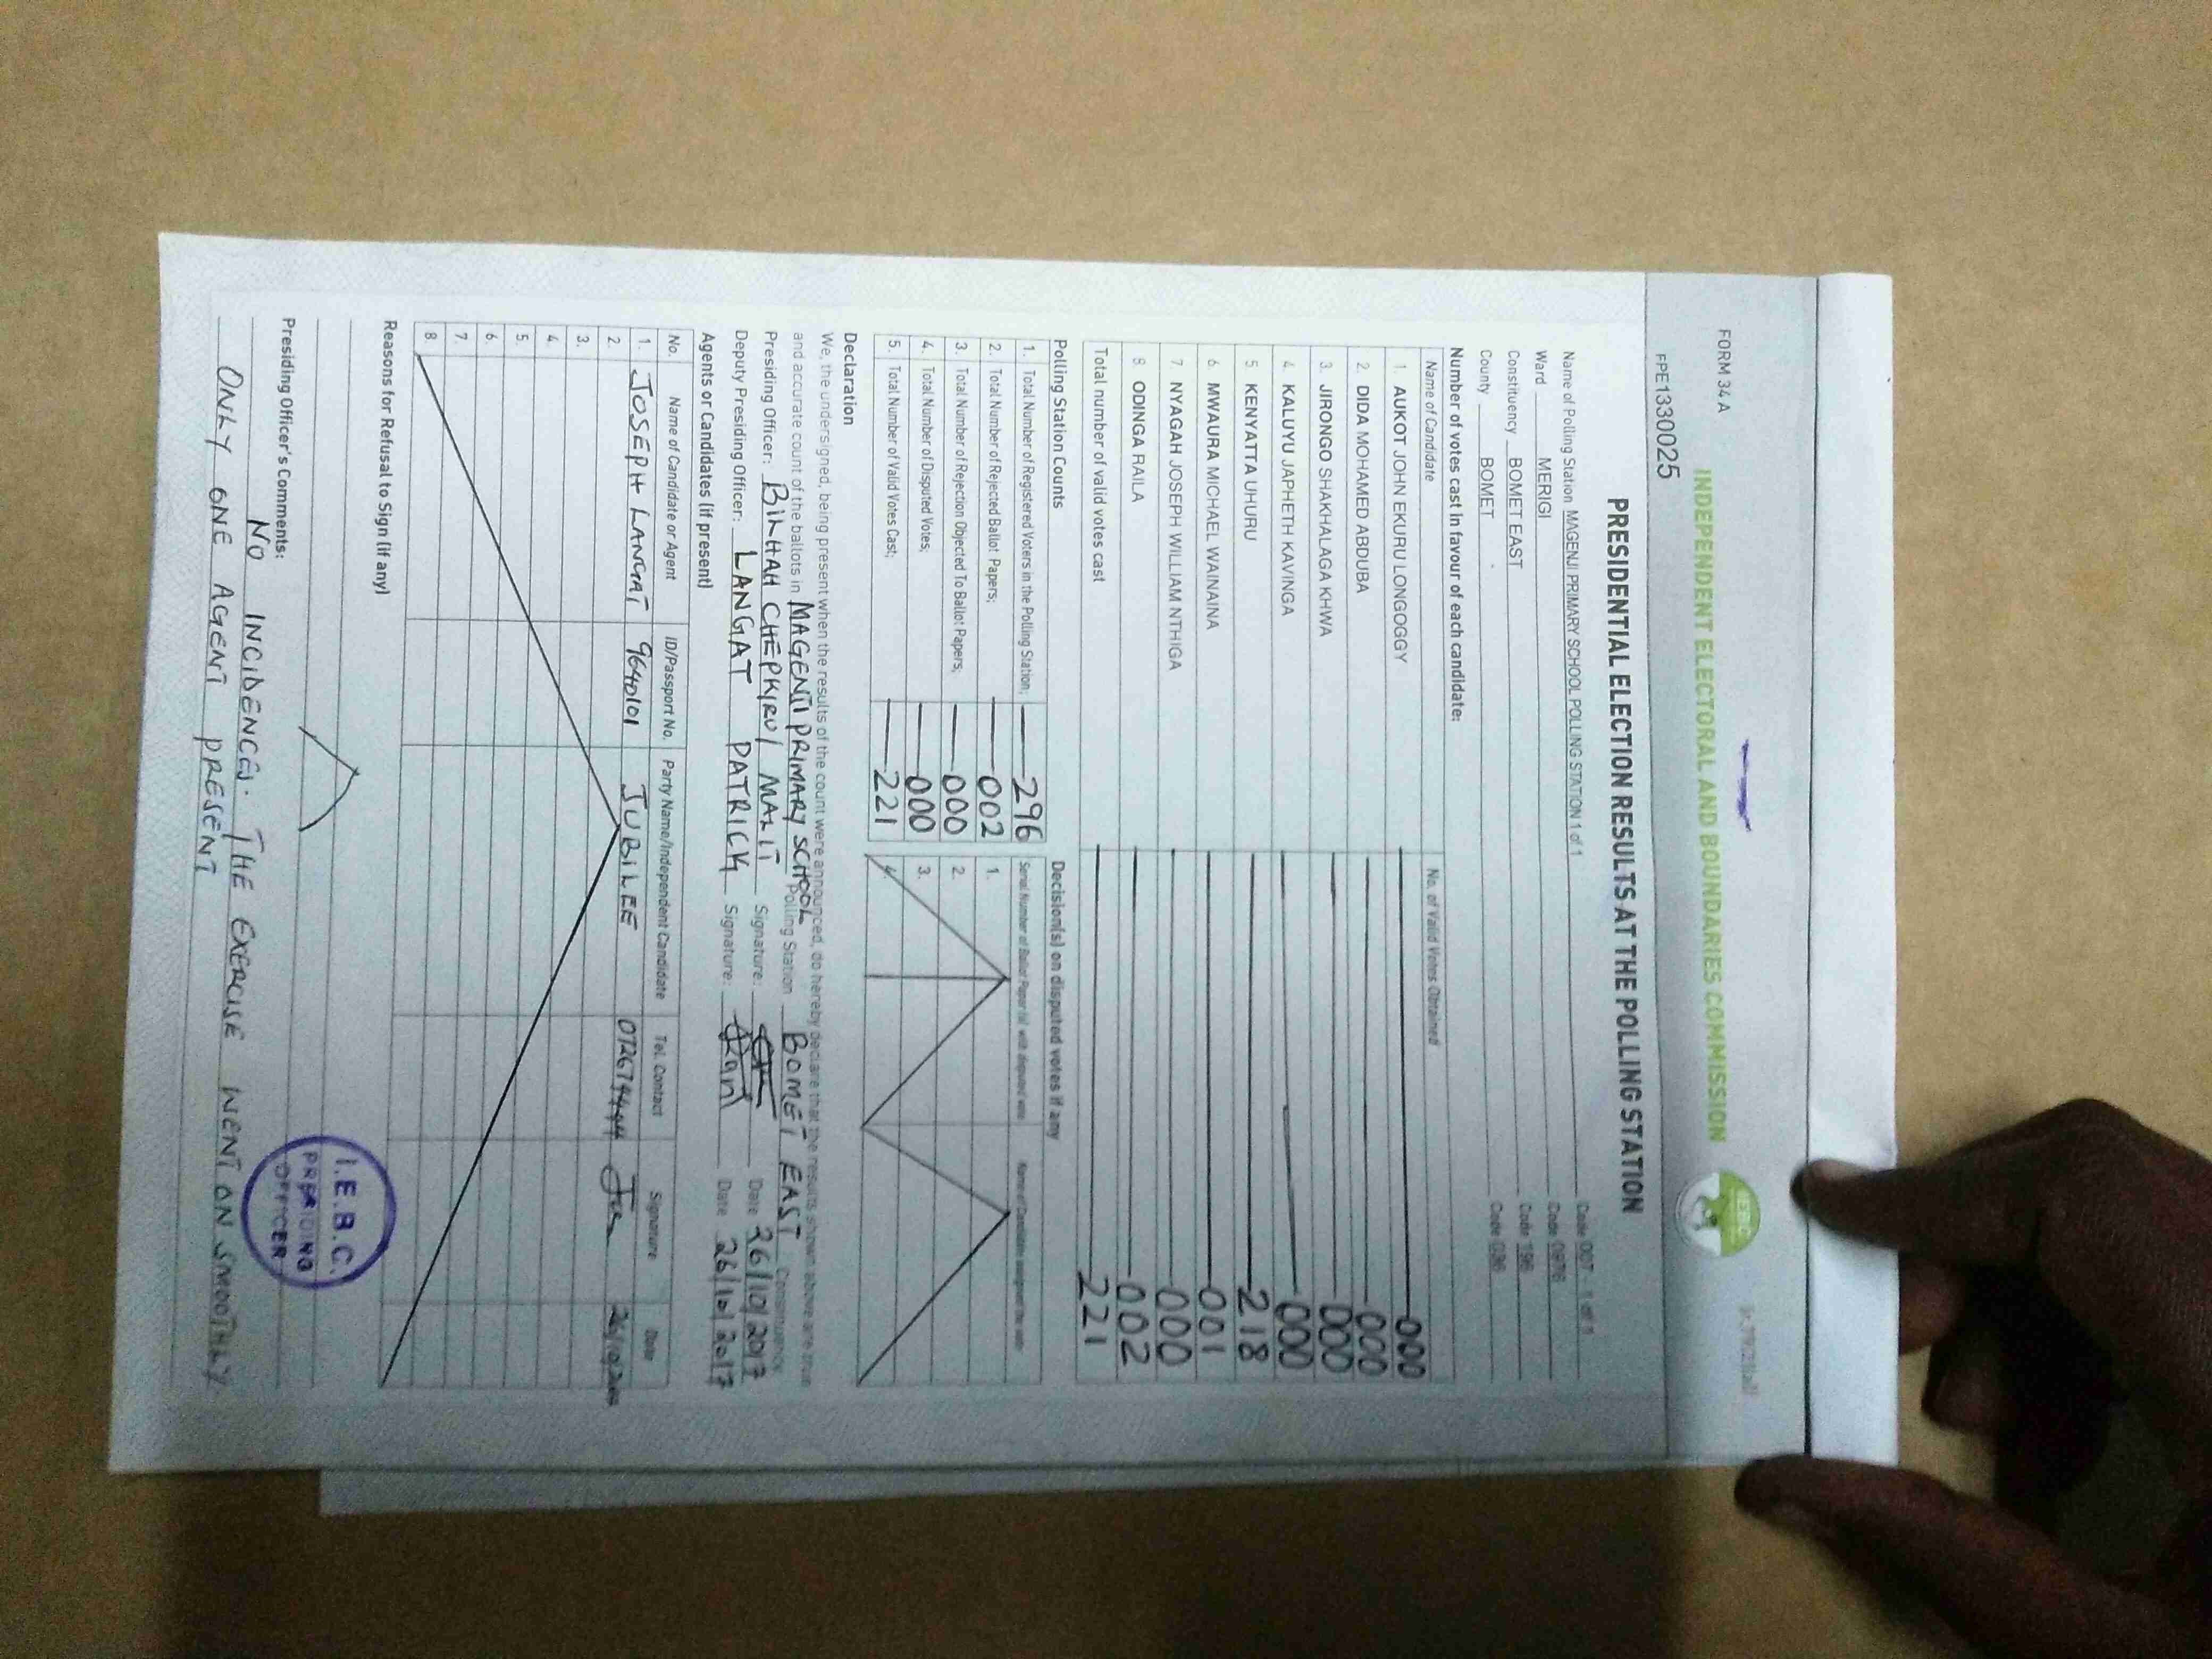 FORM 34 A
INDEPENDENT ELECTORAL AND BOUNDARIES COMMISSION
FPE1330025
PRESIDENTIAL ELECTION RESULTS AT THE POLLING STATION
Name of Polling Station MAGENJI PRIMARY SCHOOL POLLING STATION 1 of 1 Code 007 - 1 of 1
Ward MERIGI Code 0976
Constituency BOMET EAST Code 196
County BOMET Code 036
Number of votes cast in favour of each candidate:
Name of Candidate No. of Valid Votes Obtained
1. AUKOT JOHN EKURU LONGOGGY 000
2. DIDA MOHAMED ABDUBA 000
3. JIRONGO SHAKHALAGA KHWA 000
4. KALUYU JAPHETH KAVINGA 000
5 KENYATTA UHURU 218
6. MWAURA MICHAEL WAINAINA 001
7. NYAGAH JOSEPH WILLIAM NTHIGA 000
8. ODINGA RAILA 002
Total number of valid votes cast 221
Polling Station Counts
1. Total Number of Registered Voters in the Polling Station; 296
2. Total Number of Rejected Ballot Papers; 002
3. Total Number of Rejection Objected To Ballot Papers; 000
4. Total Number of Disputed Votes; 000
5. Total Number of Valid Votes Cast; 221
Decision(s) on disputed votes if any
Serial Number of Ballot Paper(s) with disputed vote
1.
2.
3.
Declaration
We, the undersigned, being present when the results of the count were announced, do hereby declare that the results shown above are true
and accurate count of the ballots in MAGENJI PRIMARY SCHOOL Polling Station BOMET EAST Constituency
Presiding Officer: BILHAH CHEPKIRUI MALIT Signature: Date 26/10/2017
Deputy Presiding Officer: LANGAT PATRICK Signature: Date 26/10/2017
Agents or Candidates (if present)
No. Name of Candidate or Agent ID/Passport No. Party Name/Independent Candidate Tel. Contact Signature Date
1. JOSEPH LANGAT 9640101 JUBILEE
2.
3.
4.
5
6.
7.
8.
Reasons for Refusal to Sign (if any)
Presiding Officer's Comments:
NO INCIDENCES. THE EXERCISE WENT ON SMOOTHLY
ONLY ONE AGENT PRESENT
I.E.B.C.
PRESIDING
OFFICER